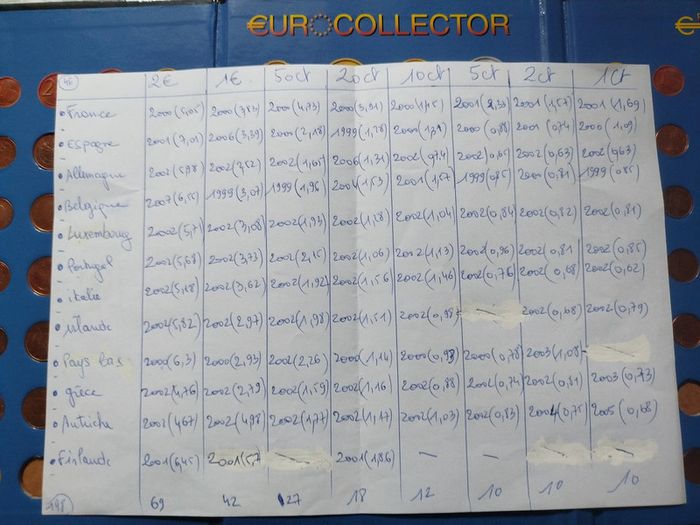 EUROCOLLECTOR
2€ 1€ 50ct 20ct 10ct 5ct 2ct 1ct
France 2000(5,05) 2000(3,83) 2000(4,73) 2000(3,31) 2001(2,30) 2001(1,57) 2001(1,69)
Espagne 2001(7,01) 2006(3,39) 2000(2,18) 1999(1,28) 2000(0,88) 2001(0,74) 2000(1,09)
Allemagne 2002(5,98) 2002(3,52) 2002(1,65) 2006(1,31) 2002(0,65) 2002(0,63) 2002(0,63)
Belgique 2007(6,55) 1999(3,07) 1999(1,96) 2004(1,53) 2001(1,57) 1999(0,85) 2000(0,81) 1999(0,85)
Luxembourg 2002(5,71) 2002(3,08) 2002(1,93) 2002(1,58) 2002(1,04) 2002(0,84) 2002(0,82) 2002(0,81)
Portugal 2002(5,68) 2002(3,73) 2002(2,15) 2002(1,06) 2002(1,13) 2002(0,96) 2002(0,81) 2002(0,85)
italie 2002(5,18) 2002(3,62) 2002(1,92) 2002(1,56) 2002(1,46) 2002(0,76) 2002(0,68) 2002(0,62)
irlande 2002(5,82) 2002(2,97) 2002(1,98) 2002(1,51) 2002(0,98) - 2002(0,68) 2002(0,79)
Pays bas 2000(6,3) 2000(2,93) 2002(2,26) 2000(1,14) 2000(0,93) 2000(0,78) 2003(1,08) -
grèce 2002(4,76) 2002(2,79) 2002(1,59) 2002(1,16) 2002(0,88) 2002(0,74) 2002(0,81) 2003(0,73)
Autriche 2002(4,67) 2002(4,98) 2002(1,77) 2002(1,17) 2002(1,03) 2002(0,83) 2004(0,75) 2005(0,68)
Finlande 2001(6,45) 2001(5,7 - 2001(1,86) - - - -
198 69 42 27 18 12 10 10 10